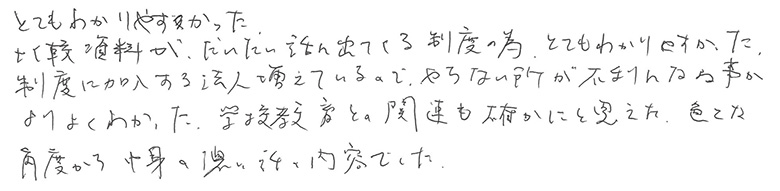 とてもわかりやすかった.
比較資料が、だいたい話に出てくる制度の為、とてもわかりやすかった.
制度に加入する法人も増えているので、やらない所が不利になる事が
よりよくわかった. 学校教育との関連も確かにと思えた. 色々な
角度から中身の濃い話の内容でした.